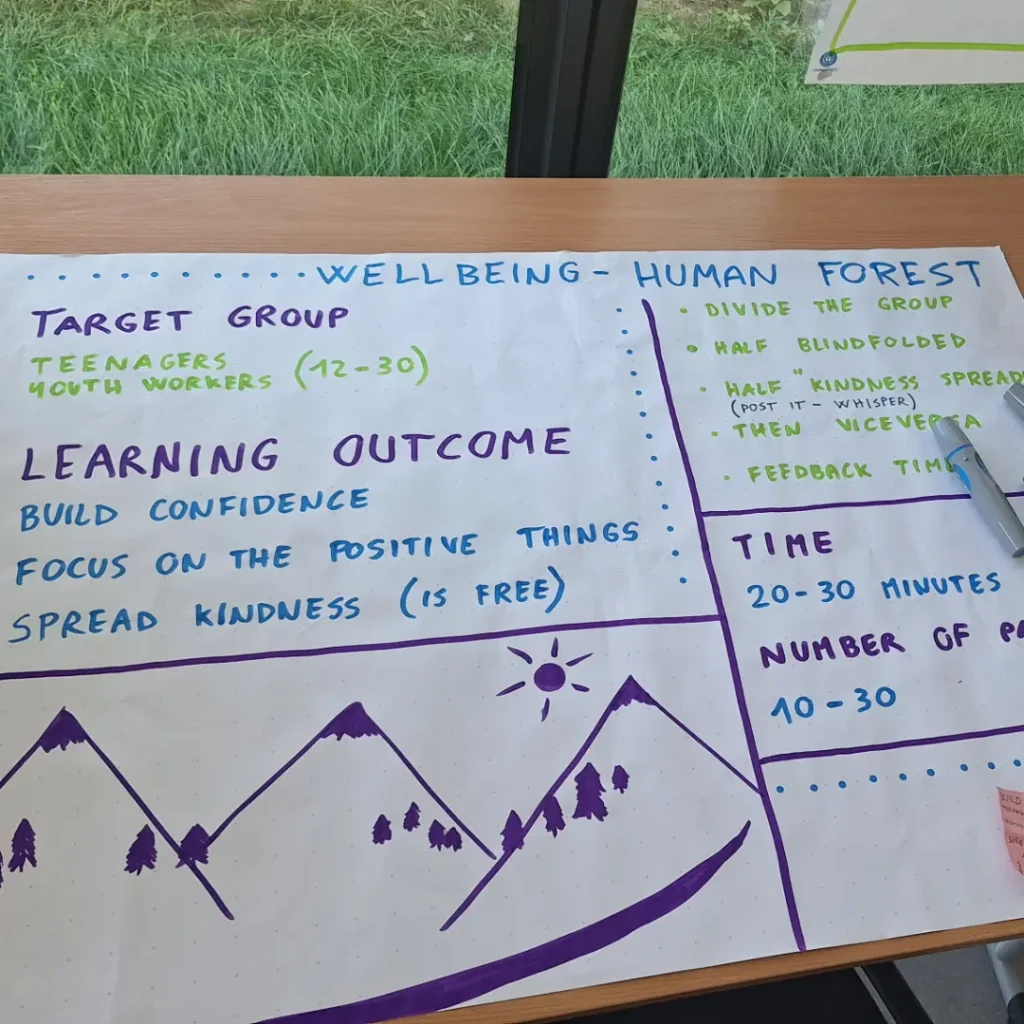 WELLBEING - HUMAN FOREST
TARGET GROUP
TEENAGERS
YOUTH WORKERS (12-30)
LEARNING OUTCOME
BUILD CONFIDENCE
FOCUS ON THE POSITIVE THINGS
SPREAD KINDNESS (IS FREE)
• DIVIDE THE GROUP
• HALF BLINDFOLDED
• HALF "KINDNESS SPREAD
(POST IT - WHISPER)
• THEN
• FEEDBACK TIME
TIME
20-30 MINUTES
NUMBER OF PA
10-30
BUILD
SPRE